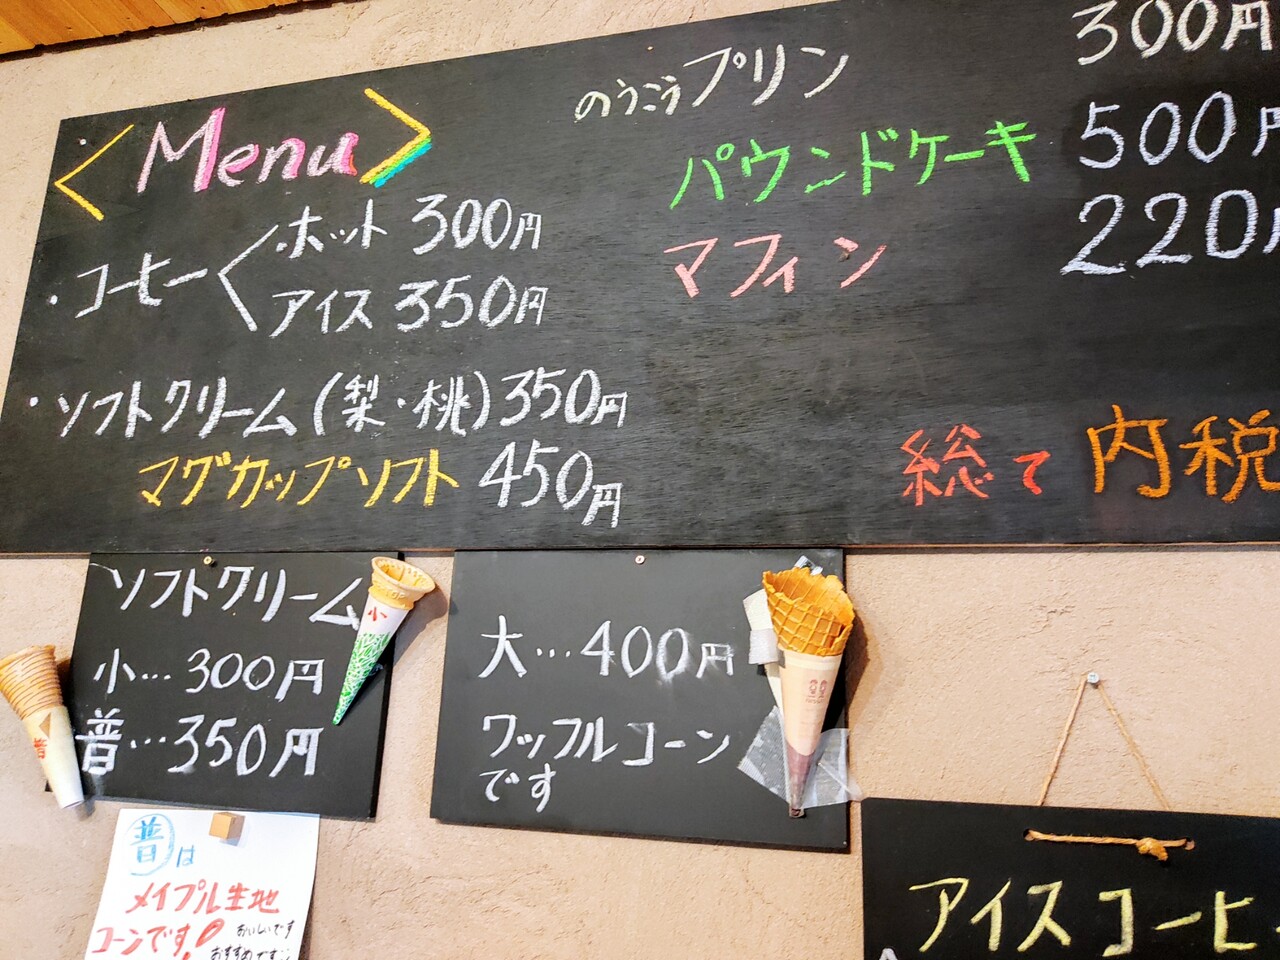 <Menu>
・コーヒー<・ホット 300円
アイス 350円
・ソフトクリーム(梨・桃)350円
マグカップソフト 450円
のうこうプリン 300円
パウンドケーキ 500円
マフィン 220円
総て 内税
ソフトクリーム
小…300円
普…350円
小
普
大…400円
ワッフルコーン
です
普は
メイプル生地
コーンです!
おいしいです
おすすめです
アイスコーヒー